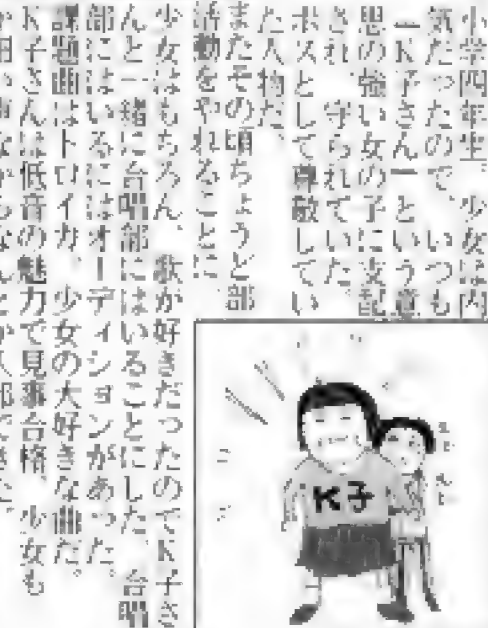 小学四年生、少女は内
気だったので、いつも
「K子さん」という意
思の強い女の子に支配
され、守られていた。
ボスとして尊敬してい
た人物だ。
またその頃ちょうど部
活動をやれることに、
少女はもちろん、歌が好きだったのでK子さ
んと一緒に合唱部にはいることにした。合唱
部にはいるにはオーディションがあった。
課題曲はトロイカ、少女の大好きな曲だ。
K子さんは低音の魅力で見事合格、少女も
細い声ながらなんとか入部できた。
K子